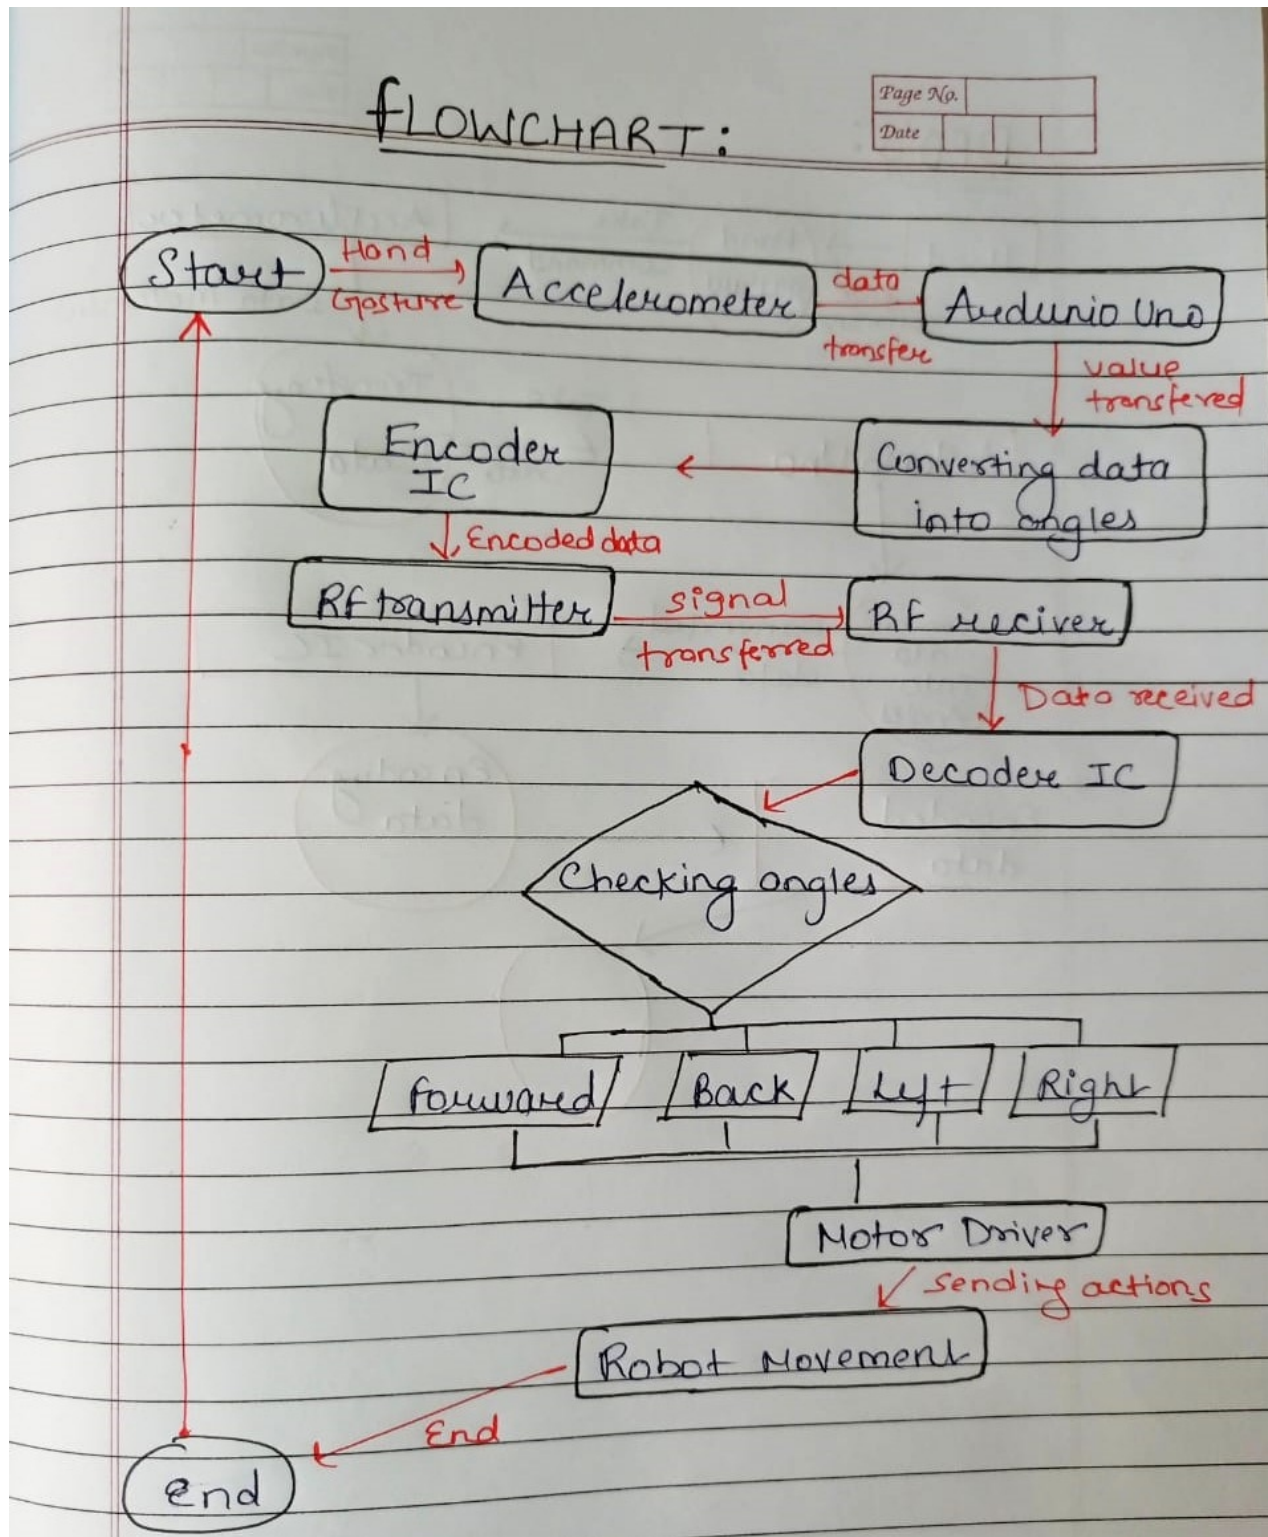 fLOWCHART:
Page No.
Date
Start
Hand
Gasture
Accelerometer
data
transfer
Ardunio Uno
value
transfered
Converting data
into angles
Encoder
IC
Encoded data
RF transmitter
signal
transferred
RF reciver
Data received
Decoder IC
Checking angles
forward
Back
Left
Right
Motor Driver
Sending actions
Robot Movement
End
End